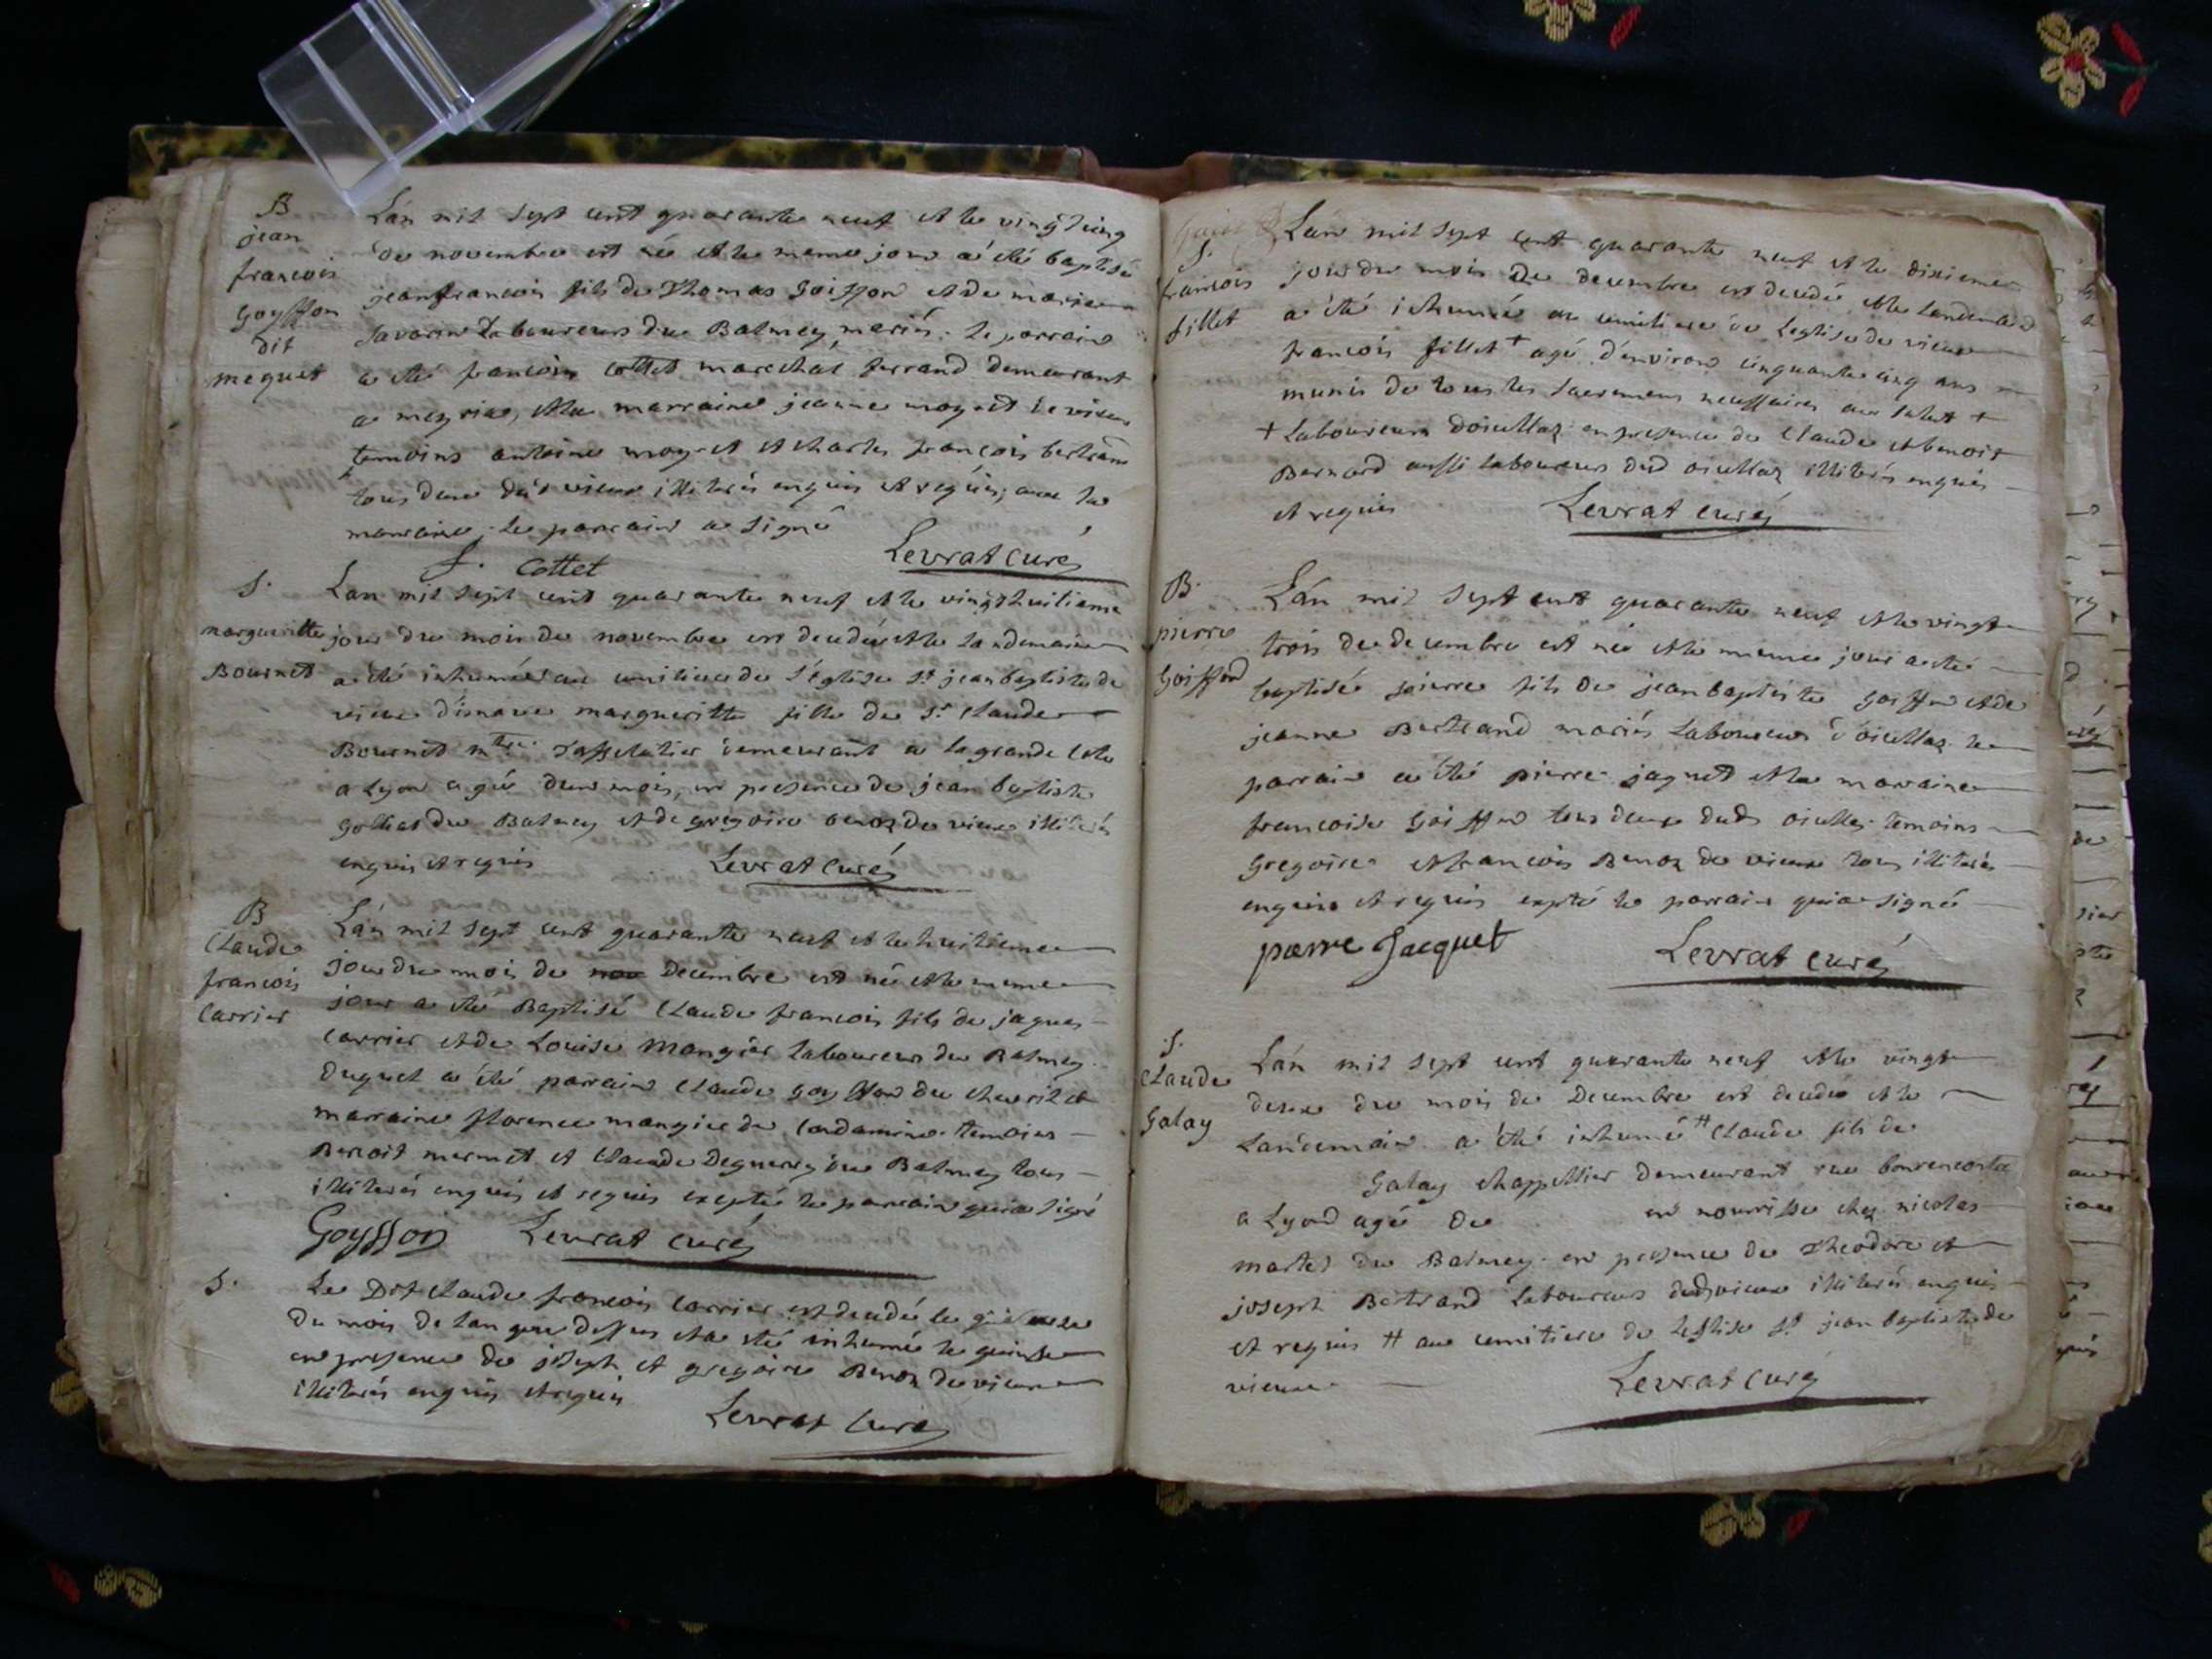 B
jean
francois
goyffon
dit
meguet
Lán mil sept cent quarante neuf et le vingt cinq
de novembre est né et le meme jour a été baptisé
jean francois fils de Thomas goiffon et de marie
Savarin Laboureurs du Balmey mariés. le parrain
a été francois Cottet marechal ferrand demeurant
a meyria, et la marraine jeanne moyret de vieu
temoins antoine moyret et charles françois bertrand
tous deux dud vieux illiterés enquis et requis, avec la
marraine. le parrain a signé
f. Cottet
Levrat curé
S.
margueritte
Bournet
Lan mil sept cent quarante neuf et le vingthuitieme
jour du mois de novembre est decedée et le landemain
a été inhumée au cemitiere de l'église st jean baptiste de
vieux margueritte fille de sr Claude
Bournet demeurant a la grande Cote
a Lyon agée d'un mois, en presence de jean baptiste
du Balmey et de gregoire benoz de vieux illiterés
enquis et requis
Levrat curé
B
Claude
francois
Carrier
Lán mil sept cent quarante neuf et le huitieme
jour du mois de nov decembre est né et le meme
jour a été Baptisé Claude francois fils de jaques
Carrier et de Louise mangier laboureurs du Balmey
Duquel a été parrain Claude goyffon du et
marraine florence mangier de Condamine. temoins
Benoit mermet et Claude Deguerry du Balmey tous
illiterés enquis et requis excepté le parrain qui a signé
Goyffon
Levrat curé
S.
Le Dit Claude francois Carrier est decedé le
du mois de lan que dessus et a été inhumé le quinze
en presence de joseph et gregoire Benoz de vieux
illiterés enquis et requis
Levrat curé
S.
francois
fillet
Lán mil sept cent quarante neuf et le dixieme
jour du mois de decembre est decedé et le landemain
a été inhumé au cemitiere de Leglise de vieux
francois fillet + agé d'environ cinquante cinq ans
munis de tous les sacremens necessaires au salut +
+ Laboureur doiullaz en presence de Claude et benoit
Bernard aussi laboureurs dud oiullaz illiterés enquis
et requis
Levrat curé
B.
pierre
Goiffon
Lán mil sept cent quarante neuf et le vingt
trois de decembre est né et le meme jour a eté
baptisé pierre fils de jean baptiste goiffon et de
jeanne Bertrand mariés Laboureurs d'oiullaz. le
parrain a été pierre jaquet et la marraine
francoise goiffon tous deux dud oiullaz. temoins
gregoire et francois Benoz de vieux tous illiterés
enquis et requis expté le parrain qui a signé
pierre Jacquet
Levrat curé
S.
Claude
Galay
Lán mil sept cent quarante neuf et le vingt
deux du mois de Decembre est decedé et le
Landemain a été inhumé # Claude fils de
Galay chappellier demeurant rue bourencontre
a Lyon agé de en nourrisse chez nicolas
martel du Balmey. en presence de Theodore et
joseph Bertrand Laboureurs dud vieux illiterés enquis
et requis # au cemitiere de leglise st jean baptiste de
vieux
Levrat curé